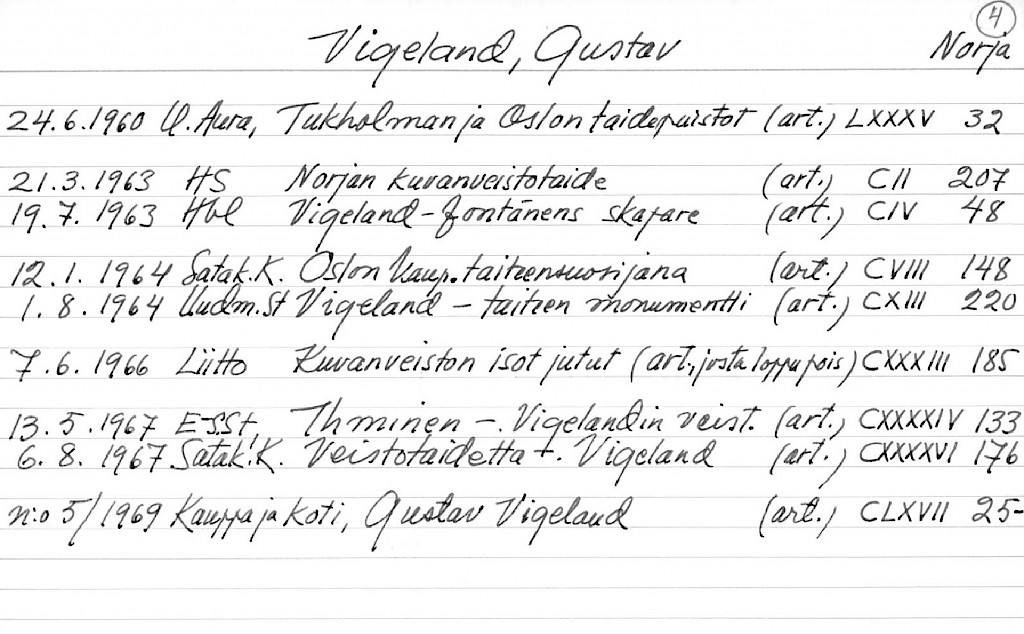 4
Vigeland, Gustav Norja
24.6.1960 U.Aura, Tukholman ja Oslon taidepuistot (art.) LXXXV 32
21.3.1963 HS Norjan kuvanveistotaide (art.) CII 207
19.7.1963 Hbl Vigeland-fontänens skapare (art.) CIV 48
12.1.1964 Satak.K. Oslon kaup. taiteensuosijana (art.) CVIII 148
1.8.1964 Uudm.St Vigeland - taiteen monumentti (art.) CXIII 220
7.6.1966 Liitto Kuvanveiston isot jutut (art., josta loppu pois) CXXXIII 185
13.5.1967 E-SSt, Ihminen -. Vigelandin veist. (art.) CXXXXIV 133
6.8.1967 Satak.K. Veistotaidetta +. Vigeland (art.) CXXXXVI 176
n:o 5/1969 Kauppa ja Koti, Gustav Vigeland (art.) CLXVII 25-